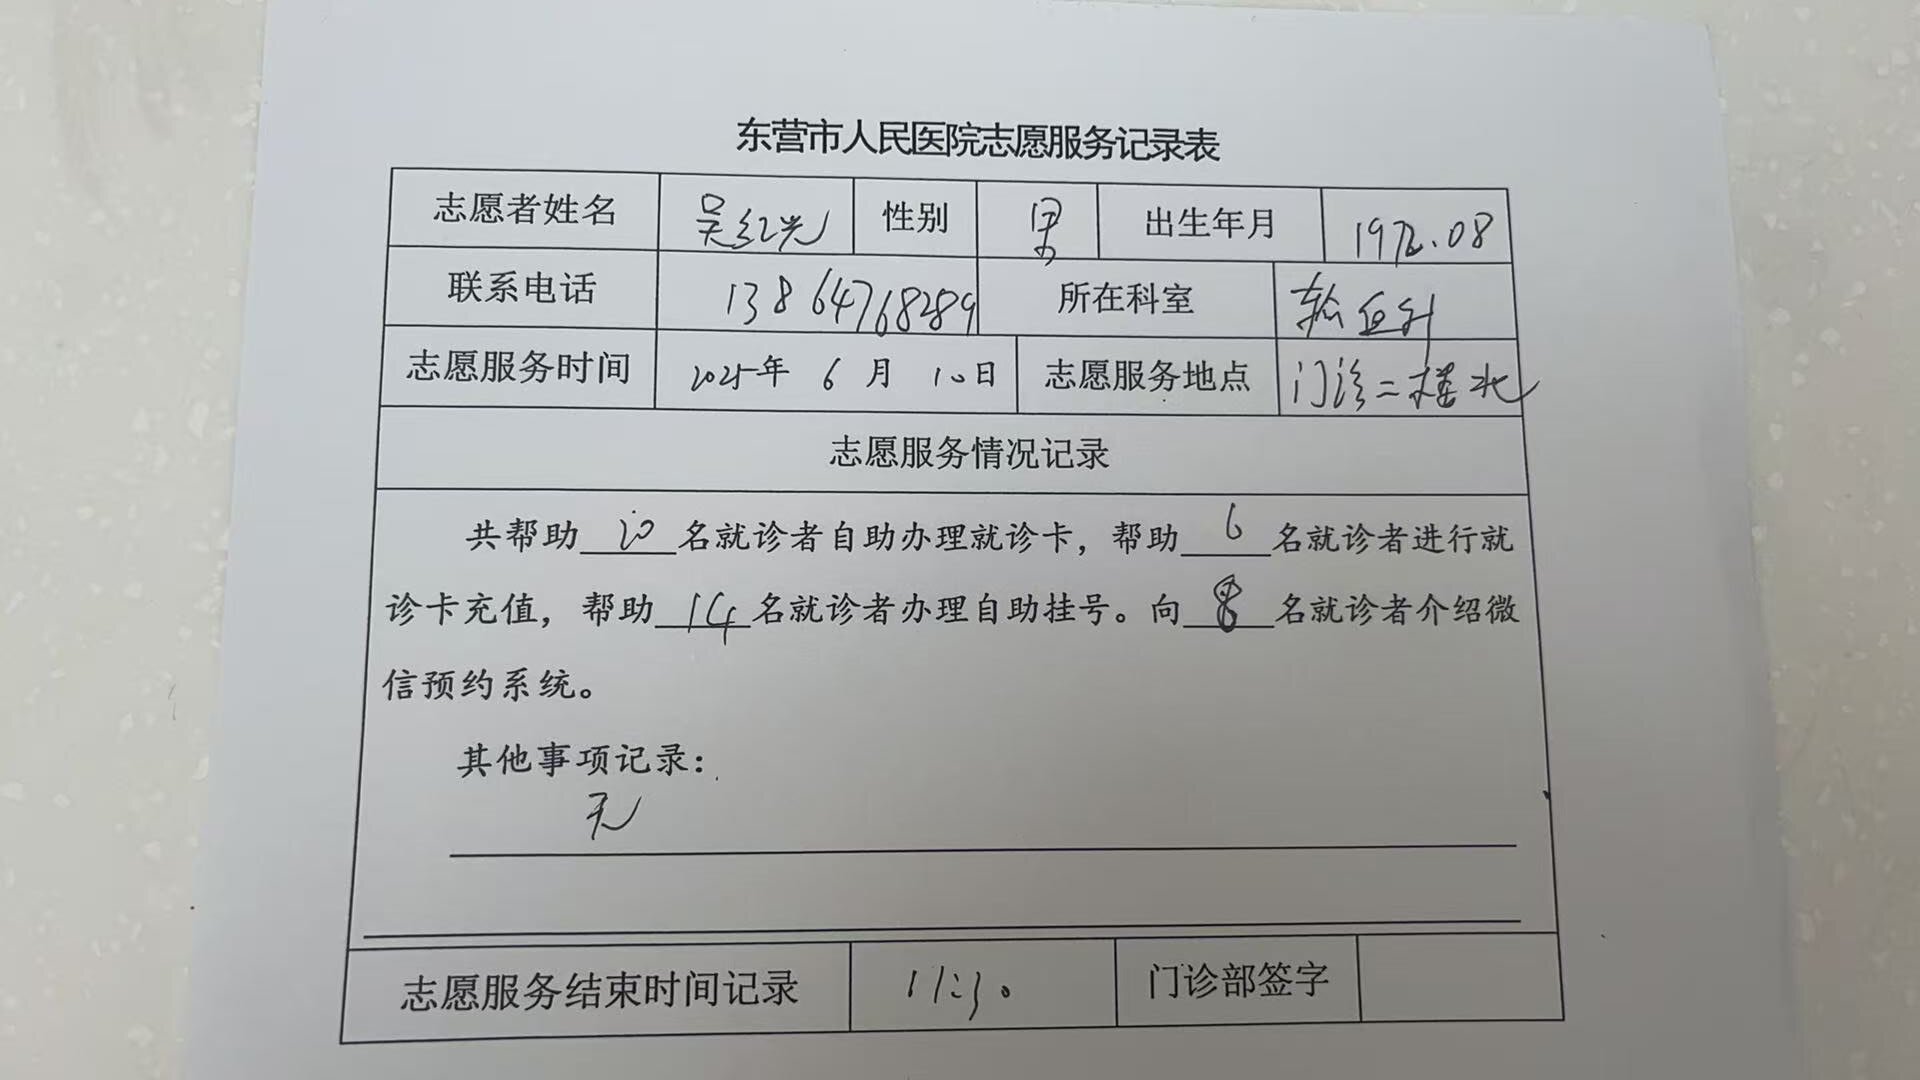 东营市人民医院志愿服务记录表
志愿者姓名 吴红光 性别 男 出生年月 1972.08
联系电话 13864768289 所在科室 输血科
志愿服务时间 2025年 6 月 10日 志愿服务地点 门诊二楼北
志愿服务情况记录
共帮助 20 名就诊者自助办理就诊卡，帮助 6 名就诊者进行就
诊卡充值，帮助 14 名就诊者办理自助挂号。向 8 名就诊者介绍微
信预约系统。
其他事项记录：
无
志愿服务结束时间记录 11:30 门诊部签字